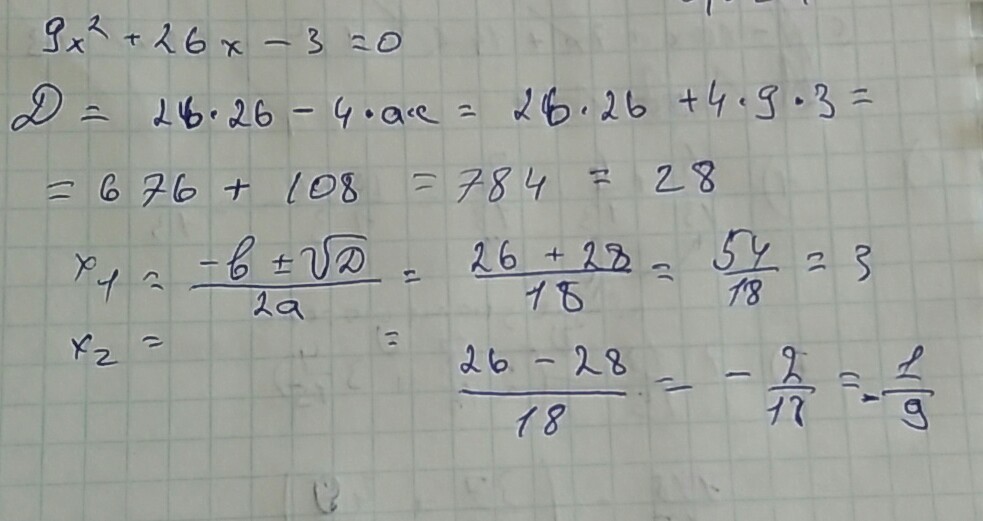 9x² + 26x - 3 = 0
D = 26·26 - 4·a·c = 26·26 + 4·9·3 =
= 676 + 108 = 784 = 28
x₁ = (-b ± √D)/(2a) = (26 + 28)/18 = 54/18 = 3
x₂ = = (26 - 28)/18 = - 2/18 = - 1/9